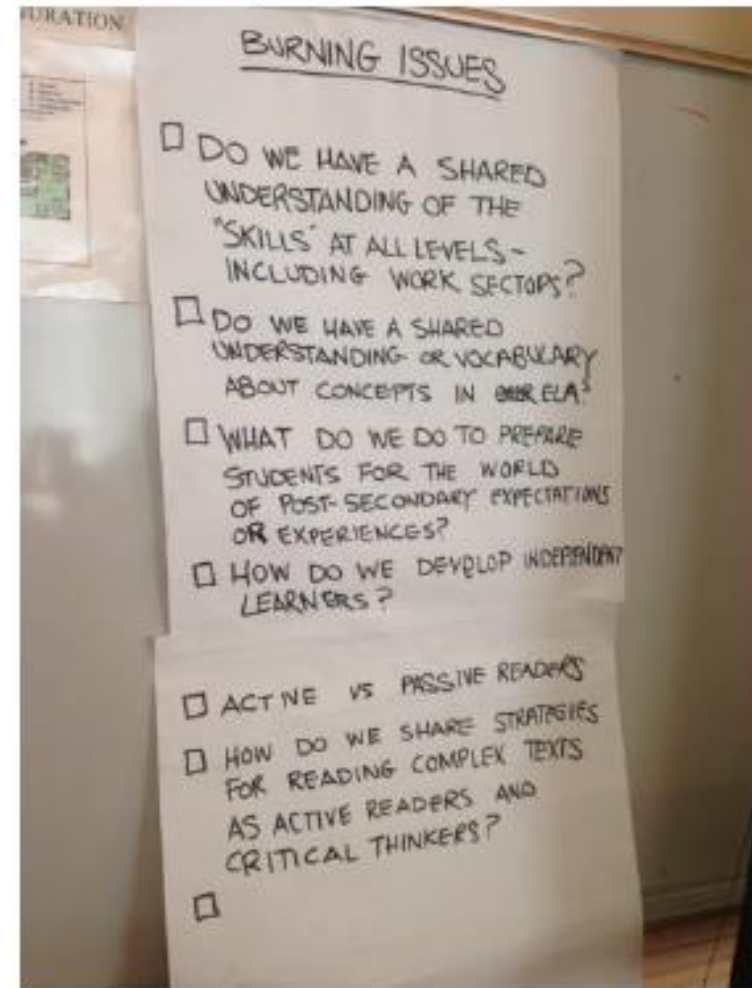 URATION
BURNING ISSUES
□ DO WE HAVE A SHARED
UNDERSTANDING OF THE
"SKILLS" AT ALL LEVELS -
INCLUDING WORK SECTORS?
□ DO WE HAVE A SHARED
UNDERSTANDING OR VOCABULARY
ABOUT CONCEPTS IN ELA?
□ WHAT DO WE DO TO PREPARE
STUDENTS FOR THE WORLD
OF POST-SECONDARY EXPECTATIONS
OR EXPERIENCES?
□ HOW DO WE DEVELOP INDEPENDENT
LEARNERS?
□ ACTIVE VS PASSIVE READERS
□ HOW DO WE SHARE STRATEGIES
FOR READING COMPLEX TEXTS
AS ACTIVE READERS AND
CRITICAL THINKERS?
□